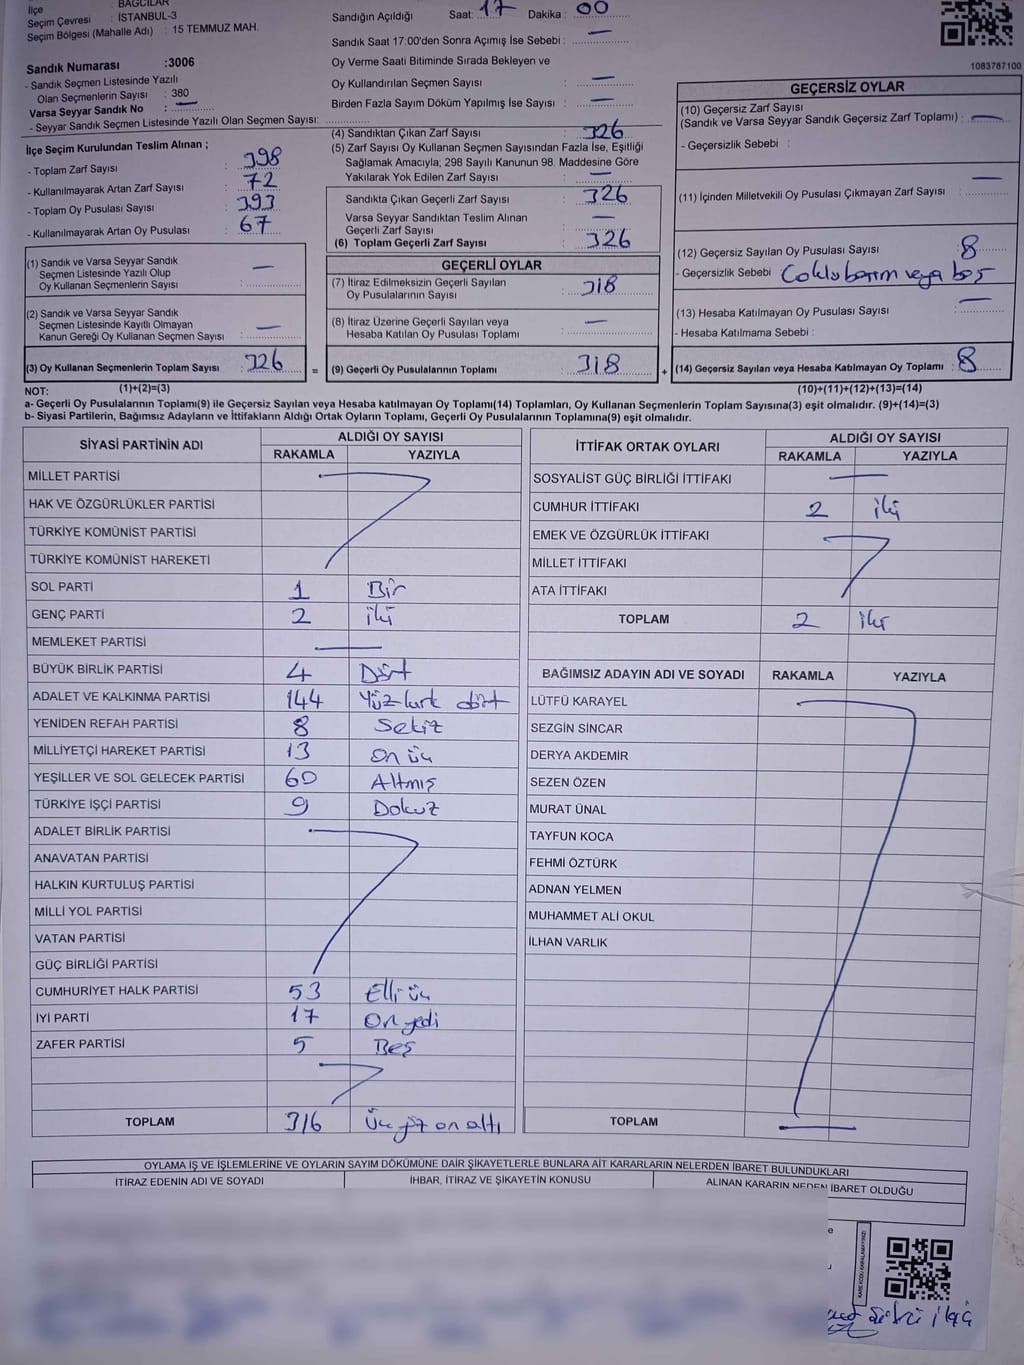 İlçe : BAĞCILAR
Seçim Çevresi : İSTANBUL-3
Seçim Bölgesi (Mahalle Adı) : 15 TEMMUZ MAH.
Sandık Numarası :3006
- Sandık Seçmen Listesinde Yazılı
Olan Seçmenlerin Sayısı : 380
Varsa Seyyar Sandık No : —
- Seyyar Sandık Seçmen Listesinde Yazılı Olan Seçmen Sayısı:
İlçe Seçim Kurulundan Teslim Alınan ;
- Toplam Zarf Sayısı : 398
- Kullanılmayarak Artan Zarf Sayısı : 72
- Toplam Oy Pusulası Sayısı : 393
- Kullanılmayarak Artan Oy Pusulası : 67
(1) Sandık ve Varsa Seyyar Sandık
Seçmen Listesinde Yazılı Olup
Oy Kullanan Seçmenlerin Sayısı : —
(2) Sandık ve Varsa Seyyar Sandık
Seçmen Listesinde Kayıtlı Olmayan
Kanun Gereği Oy Kullanan Seçmen Sayısı : —
(3) Oy Kullanan Seçmenlerin Toplam Sayısı : 326
Sandığın Açıldığı Saat: 17 Dakika : 00
Sandık Saat 17:00'den Sonra Açımış İse Sebebi : —
Oy Verme Saati Bitiminde Sırada Bekleyen ve
Oy Kullandırılan Seçmen Sayısı : —
Birden Fazla Sayım Döküm Yapılmış İse Sayısı : —
(4) Sandıktan Çıkan Zarf Sayısı : 326
(5) Zarf Sayısı Oy Kullanan Seçmen Sayısından Fazla İse, Eşitliği
Sağlamak Amacıyla; 298 Sayılı Kanunun 98. Maddesine Göre
Yakılarak Yok Edilen Zarf Sayısı : —
Sandıkta Çıkan Geçerli Zarf Sayısı : 326
Varsa Seyyar Sandıktan Teslim Alınan
Geçerli Zarf Sayısı : —
(6) Toplam Geçerli Zarf Sayısı : 326
GEÇERLİ OYLAR
(7) İtiraz Edilmeksizin Geçerli Sayılan
Oy Pusulalarının Sayısı : 318
(8) İtiraz Üzerine Geçerli Sayılan veya
Hesaba Katılan Oy Pusulası Toplamı : —
= (9) Geçerli Oy Pusulalarının Toplamı : 318
1083787100
GEÇERSİZ OYLAR
(10) Geçersiz Zarf Sayısı
(Sandık ve Varsa Seyyar Sandık Geçersiz Zarf Toplamı) : —
- Geçersizlik Sebebi :
(11) İçinden Milletvekili Oy Pusulası Çıkmayan Zarf Sayısı : —
(12) Geçersiz Sayılan Oy Pusulası Sayısı : 8
- Geçersizlik Sebebi : Çoklu basım veya boş
(13) Hesaba Katılmayan Oy Pusulası Sayısı : —
- Hesaba Katılmama Sebebi :
+ (14) Geçersiz Sayılan veya Hesaba Katılmayan Oy Toplamı : 8
NOT: (1)+(2)=(3) (10)+(11)+(12)+(13)=(14)
a- Geçerli Oy Pusulalarının Toplamı(9) ile Geçersiz Sayılan veya Hesaba katılmayan Oy Toplamı(14) Toplamları, Oy Kullanan Seçmenlerin Toplam Sayısına(3) eşit olmalıdır. (9)+(14)=(3)
b- Siyasi Partilerin, Bağımsız Adayların ve İttifakların Aldığı Ortak Oyların Toplamı, Geçerli Oy Pusulalarının Toplamına(9) eşit olmalıdır.
SİYASİ PARTİNİN ADI ALDIĞI OY SAYISI
RAKAMLA YAZIYLA
MİLLET PARTİSİ
HAK VE ÖZGÜRLÜKLER PARTİSİ
TÜRKİYE KOMÜNİST PARTİSİ
TÜRKİYE KOMÜNİST HAREKETİ
SOL PARTİ 1 Bir
GENÇ PARTİ 2 iki
MEMLEKET PARTİSİ —
BÜYÜK BİRLİK PARTİSİ 4 Dört
ADALET VE KALKINMA PARTİSİ 144 Yüz kırk dört
YENİDEN REFAH PARTİSİ 8 Sekiz
MİLLİYETÇİ HAREKET PARTİSİ 13 on üç
YEŞİLLER VE SOL GELECEK PARTİSİ 60 Altmış
TÜRKİYE İŞÇİ PARTİSİ 9 Dokuz
ADALET BİRLİK PARTİSİ
ANAVATAN PARTİSİ
HALKIN KURTULUŞ PARTİSİ
MİLLİ YOL PARTİSİ
VATAN PARTİSİ
GÜÇ BİRLİĞİ PARTİSİ
CUMHURİYET HALK PARTİSİ 53 Elli üç
İYİ PARTİ 17 On yedi
ZAFER PARTİSİ 5 Beş
TOPLAM 316 Üç yüz on altı
İTTİFAK ORTAK OYLARI ALDIĞI OY SAYISI
RAKAMLA YAZIYLA
SOSYALİST GÜÇ BİRLİĞİ İTTİFAKI —
CUMHUR İTTİFAKI 2 iki
EMEK VE ÖZGÜRLÜK İTTİFAKI
MİLLET İTTİFAKI
ATA İTTİFAKI
TOPLAM 2 iki
BAĞIMSIZ ADAYIN ADI VE SOYADI RAKAMLA YAZIYLA
LÜTFÜ KARAYEL
SEZGİN SİNCAR
DERYA AKDEMİR
SEZEN ÖZEN
MURAT ÜNAL
TAYFUN KOCA
FEHMİ ÖZTÜRK
ADNAN YELMEN
MUHAMMET ALİ OKUL
İLHAN VARLIK
TOPLAM —
OYLAMA İŞ VE İŞLEMLERİNE VE OYLARIN SAYIM DÖKÜMÜNE DAİR ŞİKAYETLERLE BUNLARA AİT KARARLARIN NELERDEN İBARET BULUNDUKLARI
İTİRAZ EDENİN ADI VE SOYADI İHBAR, İTİRAZ VE ŞİKAYETİN KONUSU ALINAN KARARIN NEDEN İBARET OLDUĞU
KARE KODU KARALAMAYINIZ!